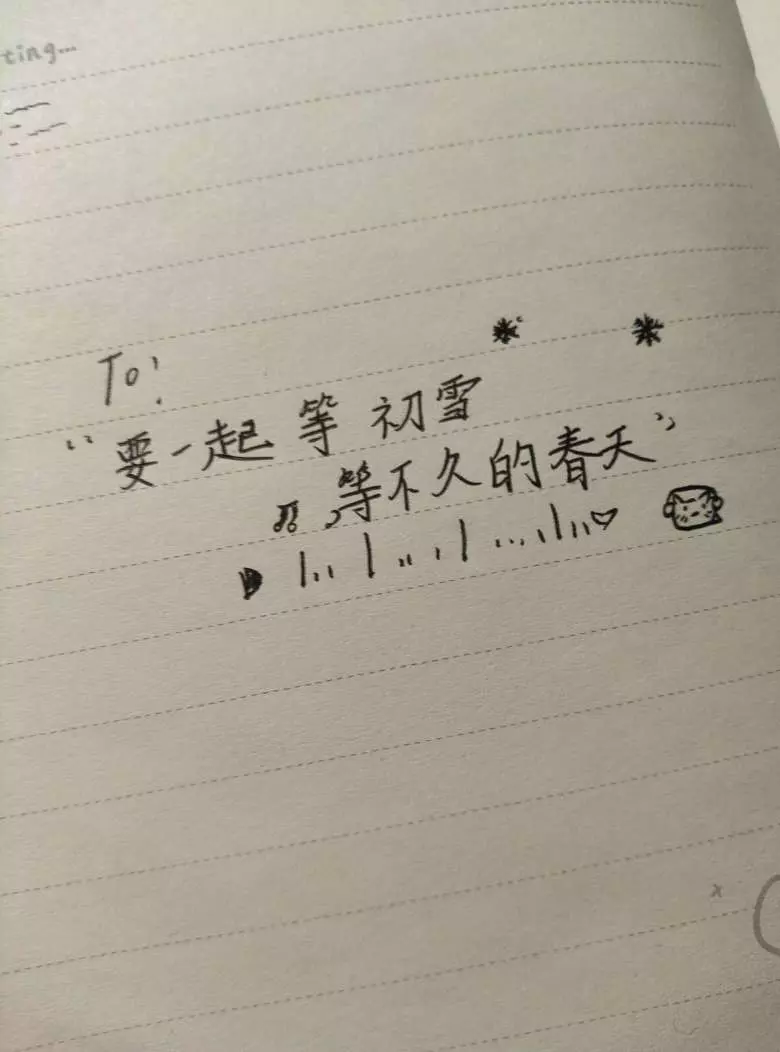 ting...
To:
“要一起 等 初雪
,等不久的春天”